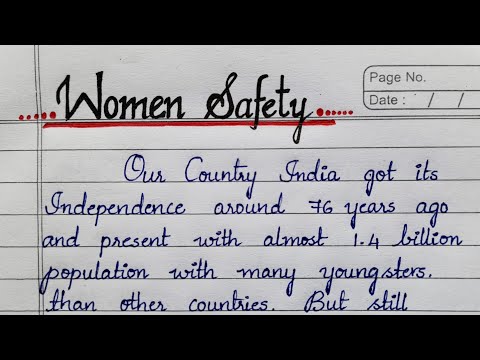 .....Women Safety......
Page No.
Date : / /
Our Country India got its
Independence around 76 years ago
and present with almost 1.4 billion
population with many youngsters.
than other countries. But still